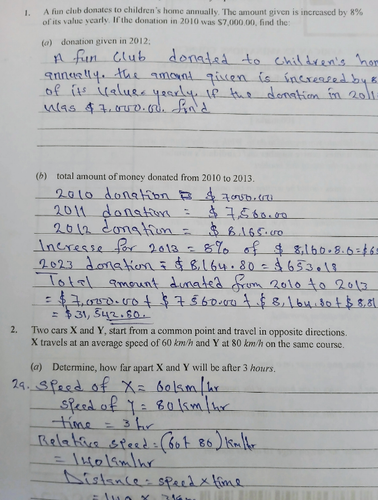 1. A fun club donates to children's home annually. The amount given is increased by 8%
of its value yearly. If the donation in 2010 was $7,000.00, find the:
(a) donation given in 2012;
A fun club donated to children's hom
annually. the amount given is increased by 8
of its value yearly. if the donation in 2011
was $7,000.00. find
(b) total amount of money donated from 2010 to 2013.
2010 donation = $ 7000.00
2011 donation = $ 7,560.00
2012 donation = $ 8,165.00
Increase for 2013 = 8% of $ 8,160.8.0=$65
2023 donation = $ 8,164.80 = $653.18
Total amount donated from 2010 to 2013
= $7,000.00 + $7560.00 + $8,164.80 + $8,81
= $31,542.80.
2. Two cars X and Y, start from a common point and travel in opposite directions.
X travels at an average speed of 60 km/h and Y at 80 km/h on the same course.
(a) Determine, how far apart X and Y will be after 3 hours.
2a. speed of X = 60km/hr
speed of Y = 80km/hr
time = 3hr
Relative speed = (60+ 80) km/hr
= 140km/hr
Distance = speed x time
= 140 x